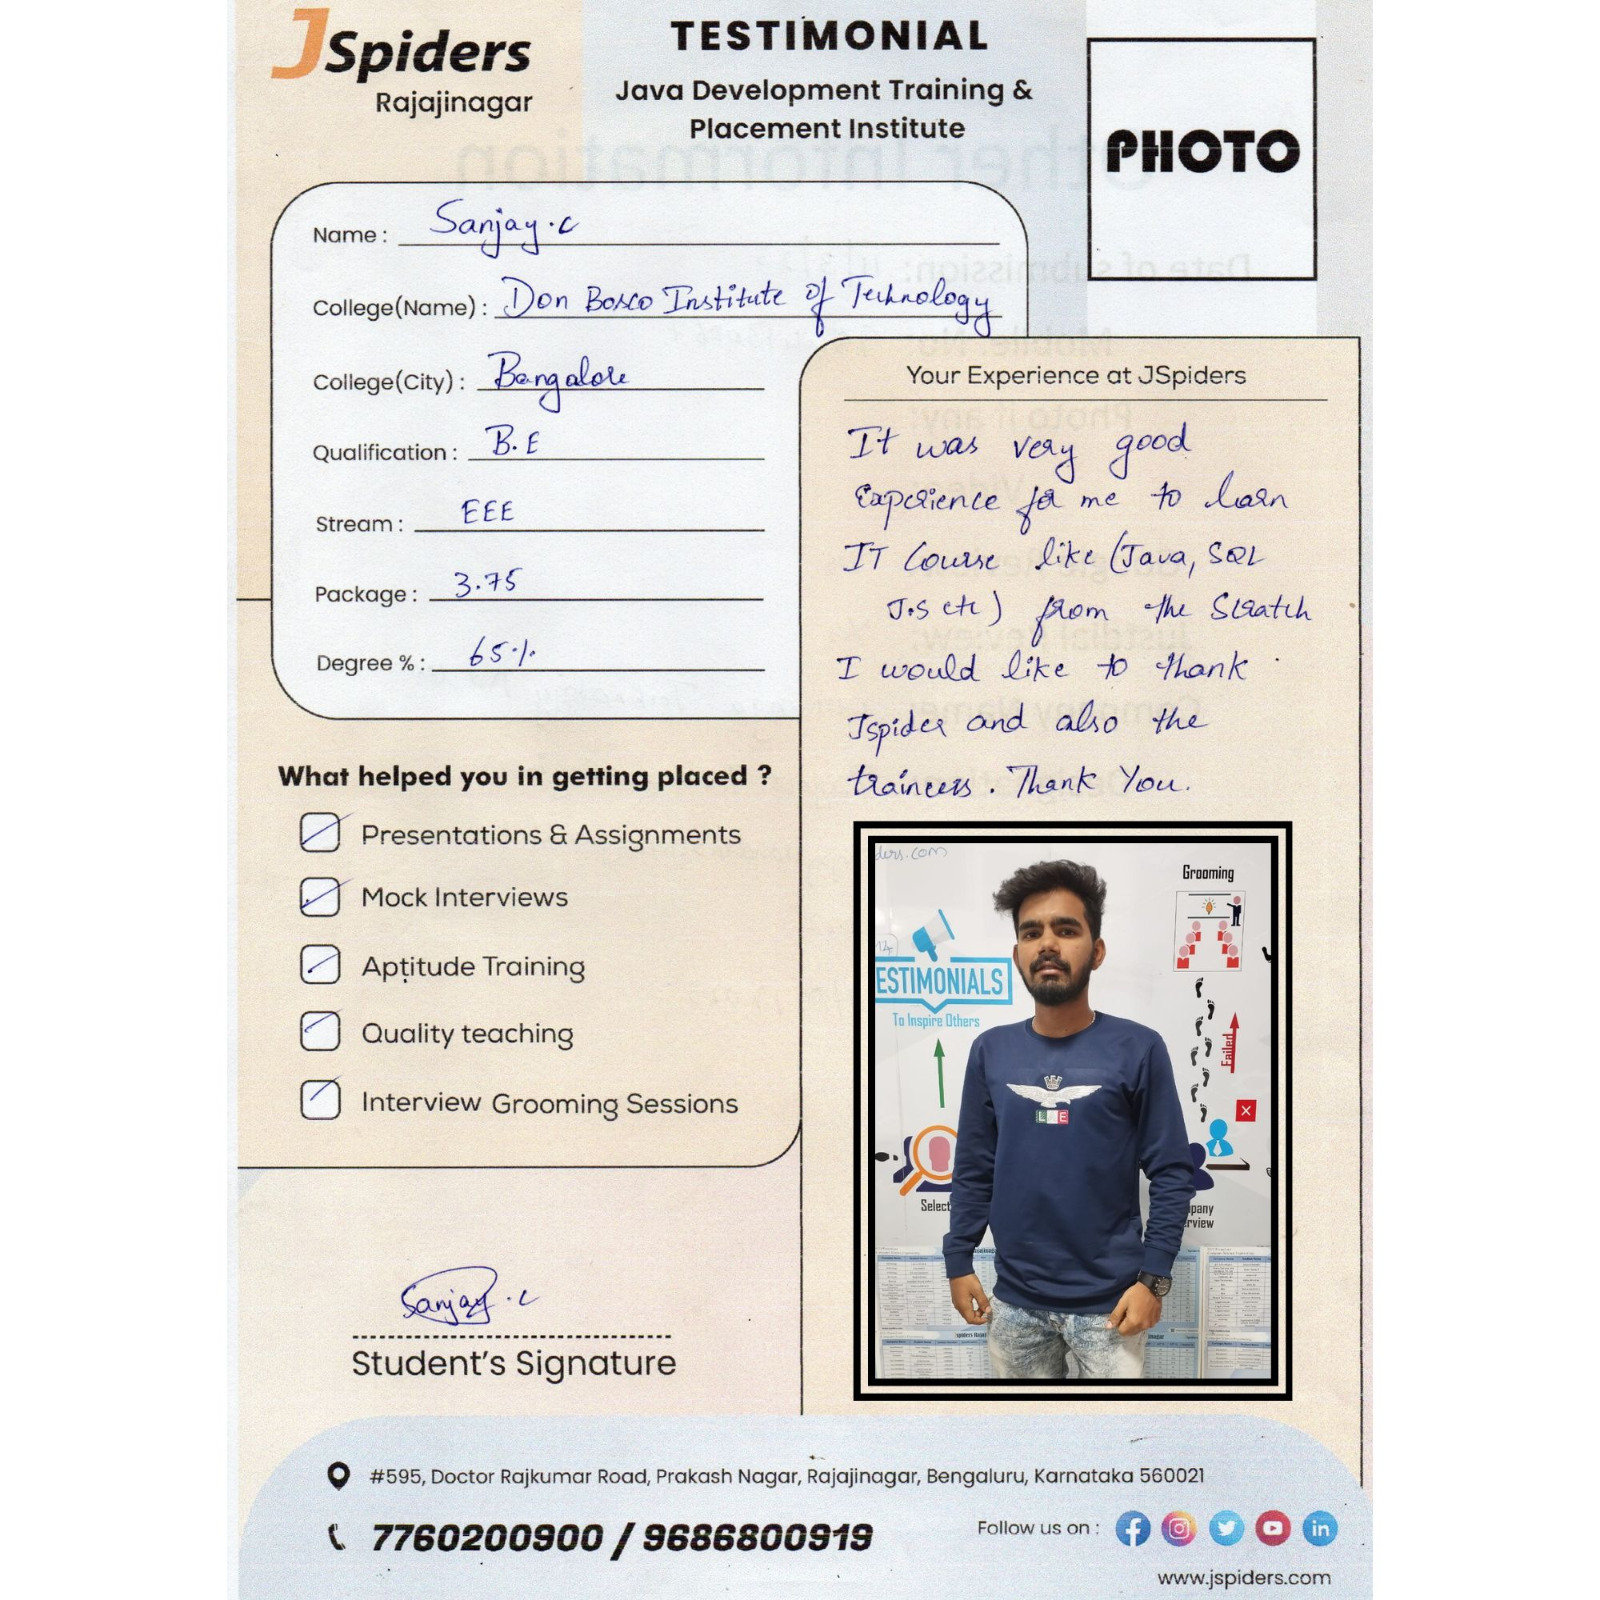 JSpiders
Rajajinagar
TESTIMONIAL
Java Development Training &
Placement Institute
PHOTO
Name : Sanjay.C
College(Name) : Don Bosco Institute of Technology
College(City) : Bangalore
Qualification : B.E
Stream : EEE
Package : 3.75
Degree % : 65%
What helped you in getting placed ?
Presentations & Assignments
Mock Interviews
Aptitude Training
Quality teaching
Interview Grooming Sessions
Sanjay.C
Student's Signature
Your Experience at JSpiders
It was very good
Experience for me to learn
IT Course like (Java, SQL
J.S etc) from the Scratch
I would like to thank
Jspider and also the
trainers. Thank You.
ders.com
Grooming
ESTIMONIALS
To Inspire Others
Failed
Select
pany
rview
#595, Doctor Rajkumar Road, Prakash Nagar, Rajajinagar, Bengaluru, Karnataka 560021
7760200900 / 9686800919
Follow us on :
www.jspiders.com